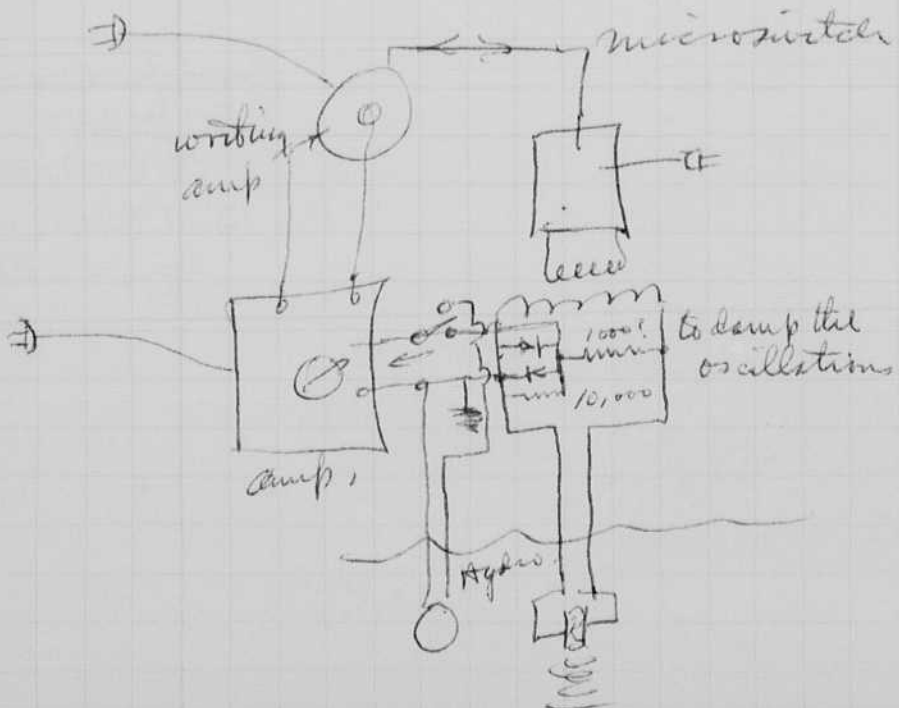 microswitch
writing
amp
1000
to damp the
oscillations
10,000
amp,
Hydro